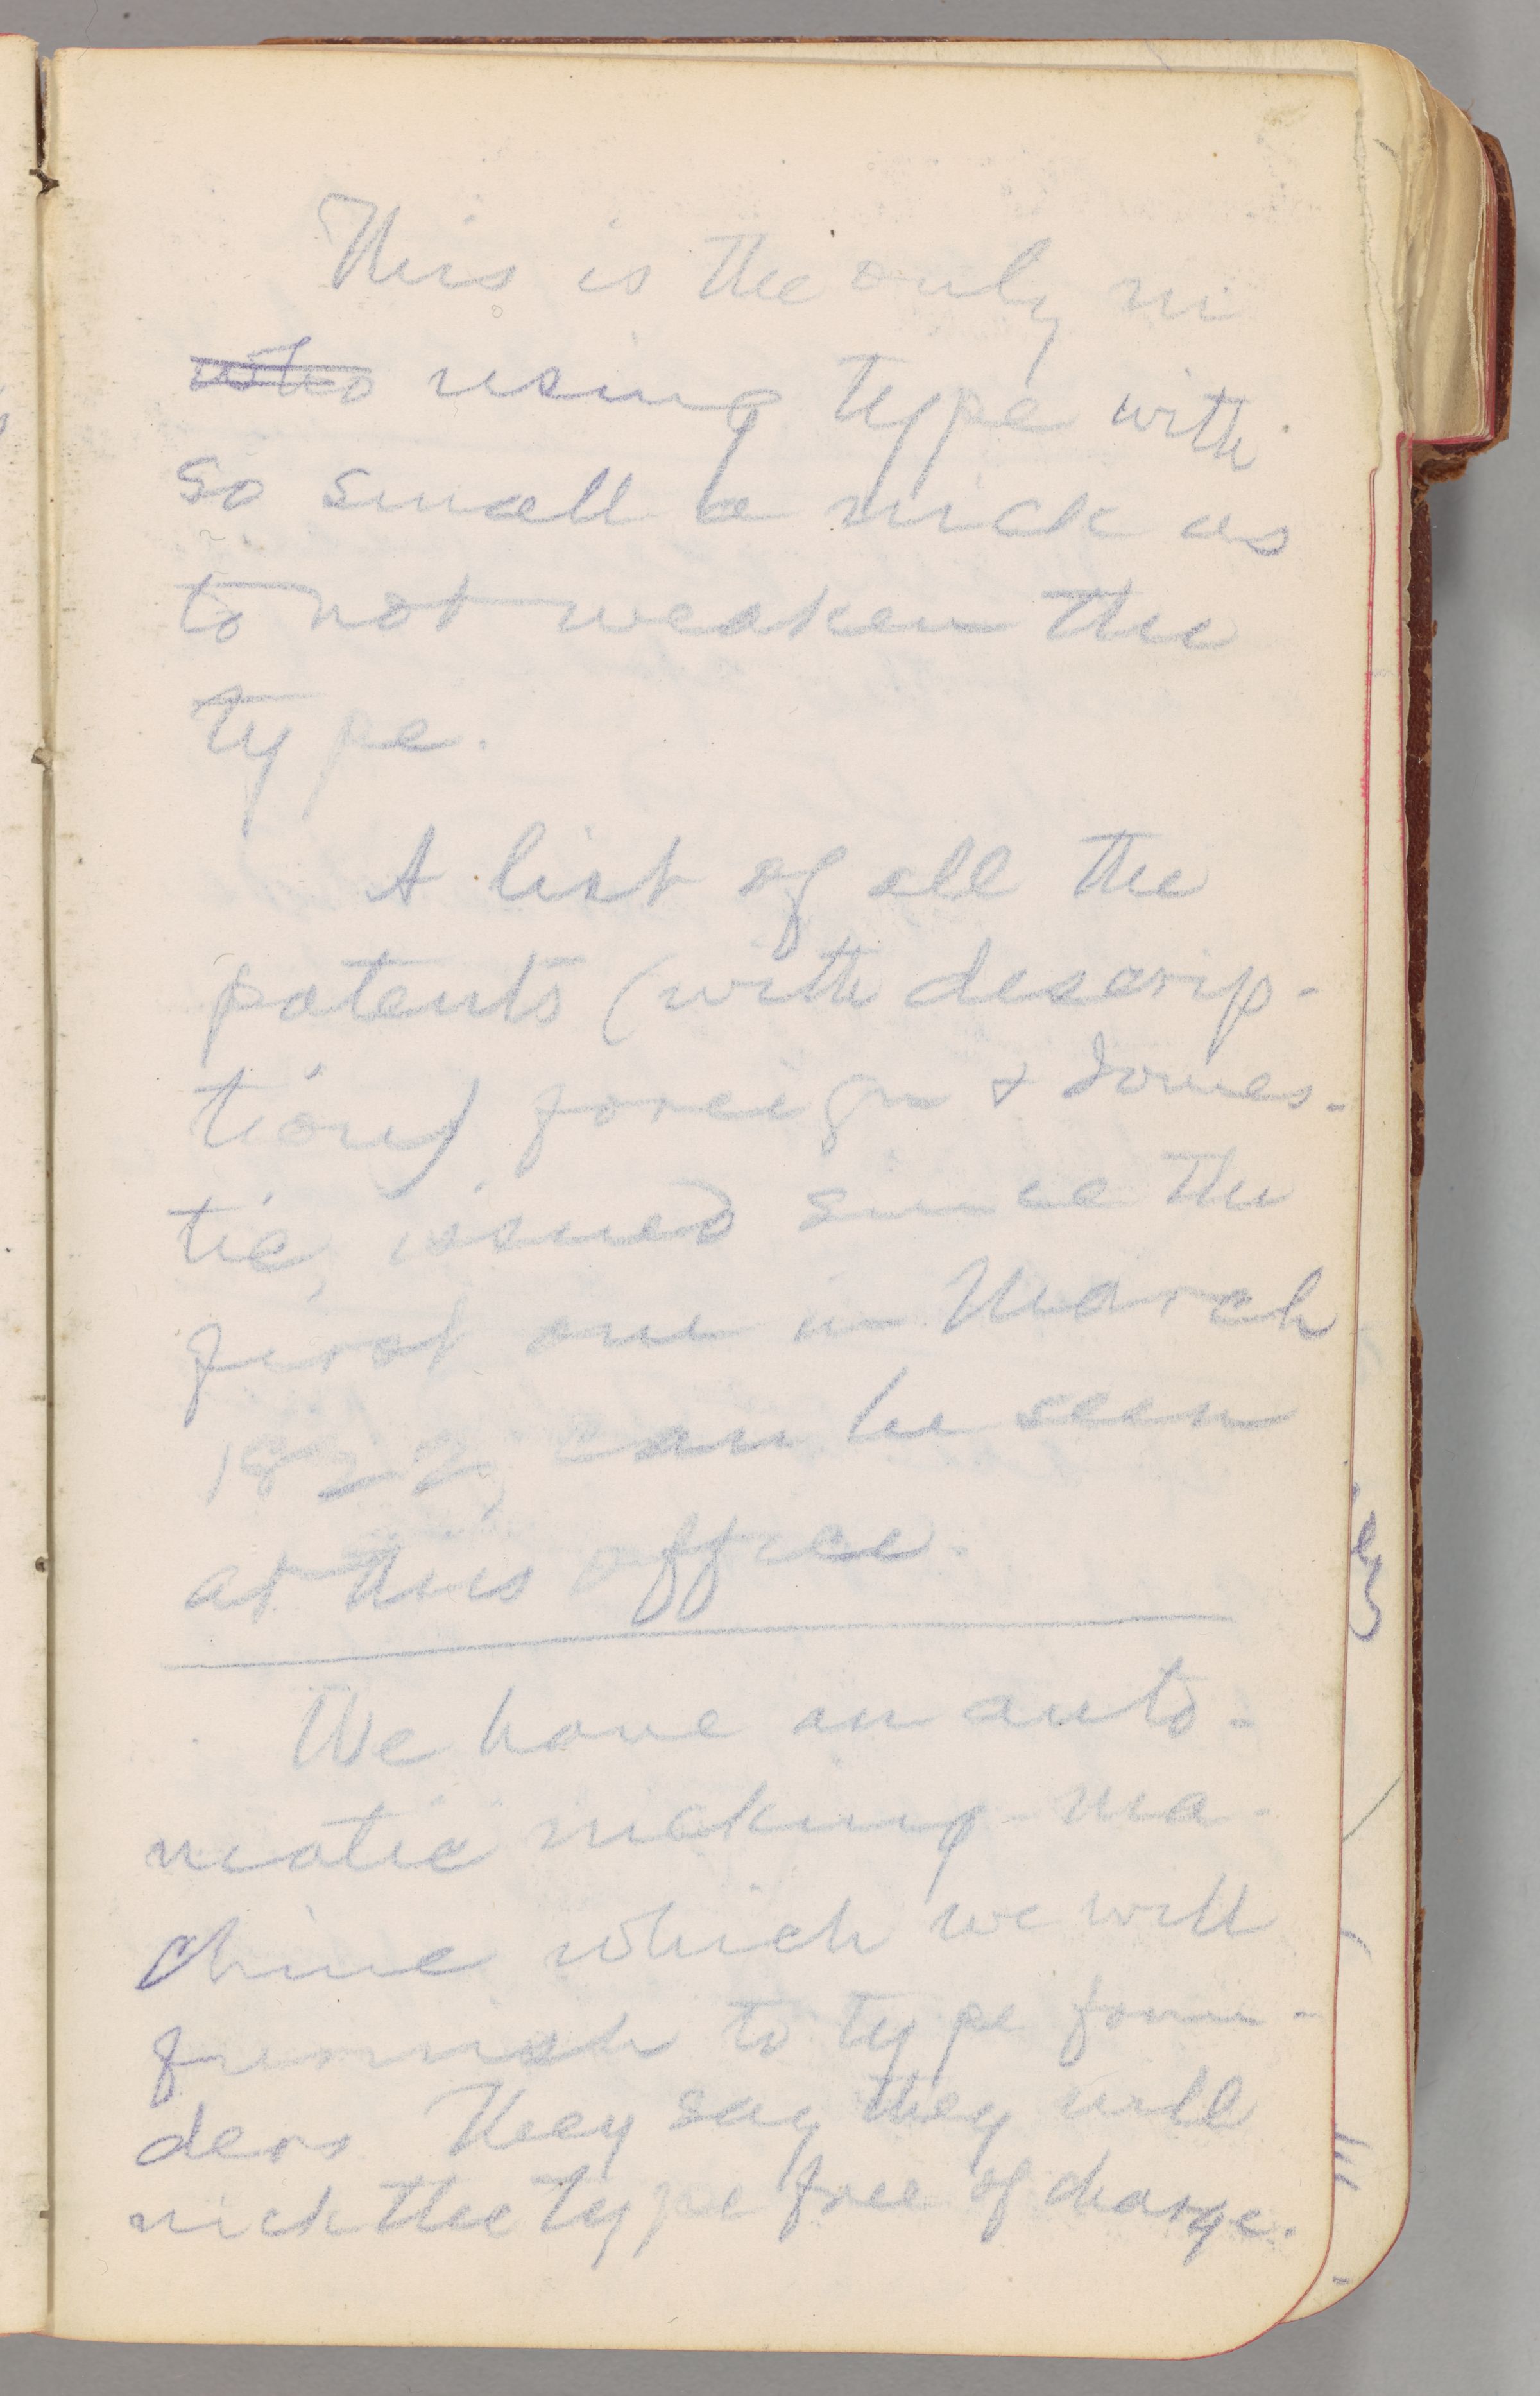 This is the only m
who using type with
so small a nick as
to not weaken the
type.
A list of all the
patents (with descrip-
tions) foreign & domes-
tic, issued since the
first one in March
1822, can be seen
at this office.
We have an auto-
matic nicking ma-
chine which we will
furnish to type foun-
ders. They say they will
nick the type free of charge.